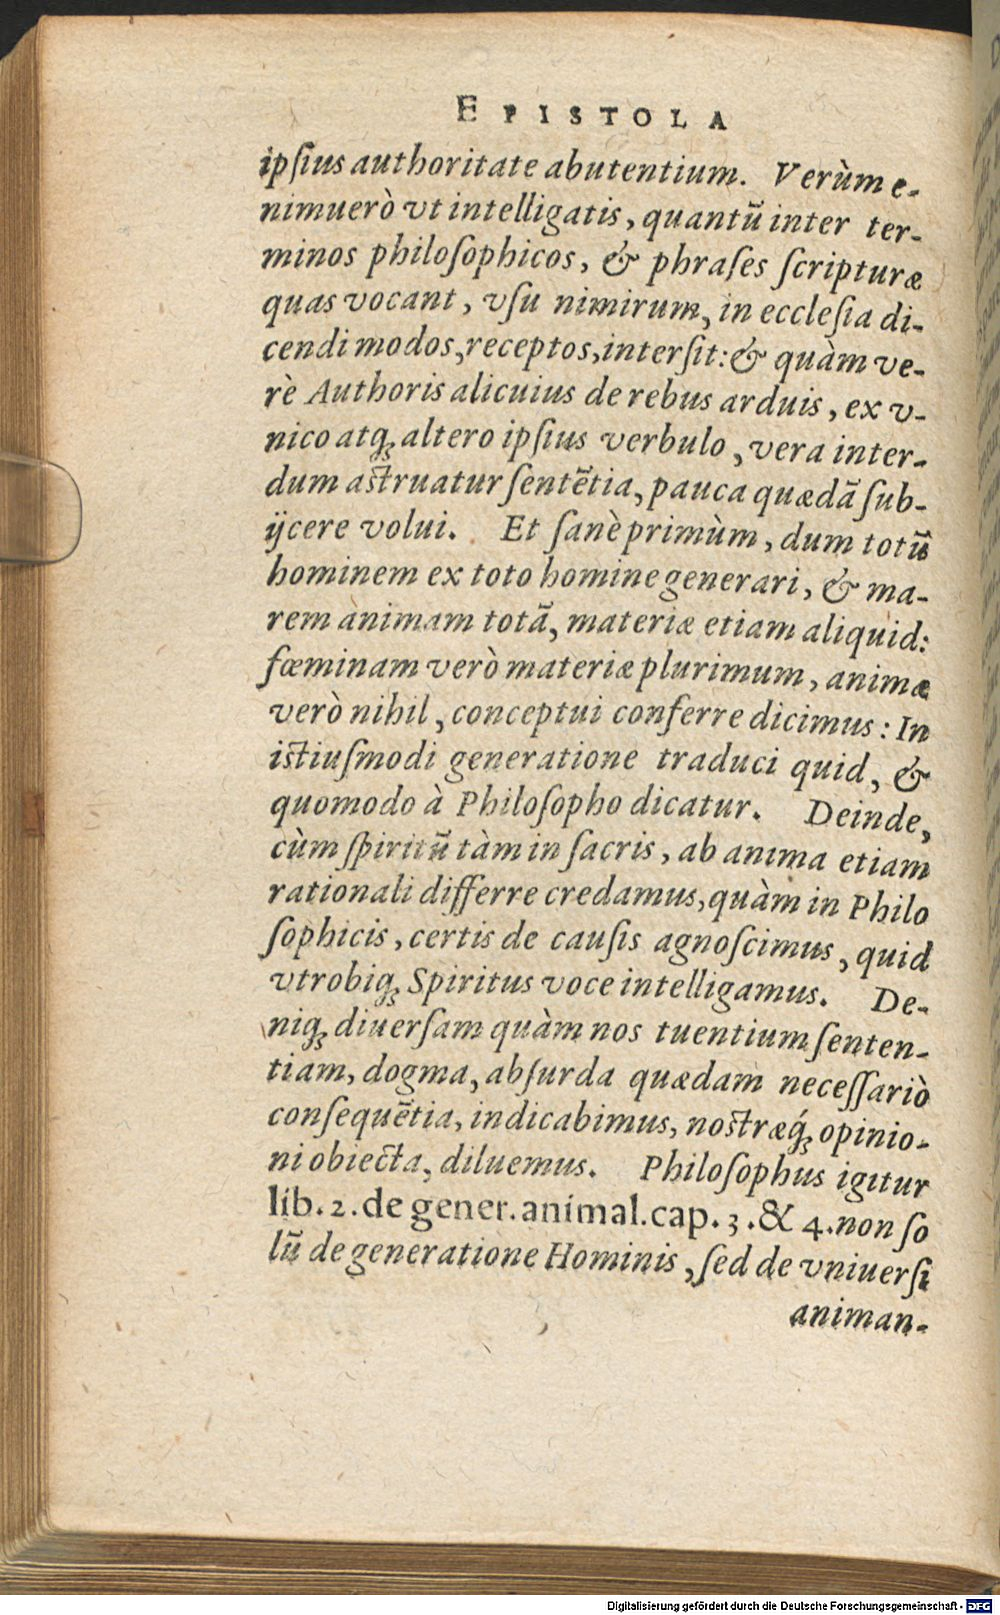 EPISTOLA
ipſius authoritate abutentium. Verùm e-
nimuerò vt intelligatis, quantũ inter ter-
minos philoſophicos, & phraſes ſcripturæ
quas vocant, vſu nimirum, in eccleſia di-
cendi modos, receptos, interſit: & quàm ve-
rè Authoris alicuius de rebus arduis, ex v-
nico atq́; altero ipſius verbulo, vera inter-
dum aſtruatur ſentẽtia, pauca quædã ſub-
ijcere volui. Et ſanè primùm, dum totũ
hominem ex toto homine generari, & ma-
rem animam totã, materiæ etiam aliquid:
fœminam verò materiæ plurimum, animæ
verò nihil, conceptui conferre dicimus: In
iſtiuſmodi generatione traduci quid, &
quomodo à Philoſopho dicatur. Deinde,
cùm ſpiritũ tàm in ſacris, ab anima etiam
rationali differre credamus, quàm in Philo
ſophicis, certis de cauſis agnoſcimus, quid
vtrobiq; Spiritus voce intelligamus. De-
niq; diuerſam quàm nos tuentium ſenten-
tiam, dogma, abſurda quædam neceſſariò
conſequẽtia, indicabimus, noſtræq́; opinio-
ni obiecta, diluemus. Philoſophus igitur
lib. 2. de gener. animal. cap. 3. & 4. non ſo
lũ de generatione Hominis, ſed de vniuerſi
animan-
Digitalisierung gefördert durch die Deutsche Forschungsgemeinschaft - DFG